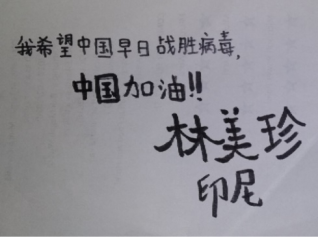 我希望中国早日战胜病毒,
中国加油!!
林美珍
印尼